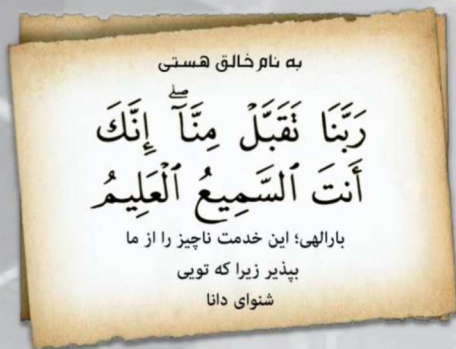 به نام خالق هستی
رَبَّنَا تَقَبَّلْ مِنَّآ ۖ إِنَّكَ
أَنتَ ٱلسَّمِيعُ ٱلْعَلِيمُ
بارالهی؛ این خدمت ناچیز را از ما
بپذیر زیرا که تویی
شنوای دانا